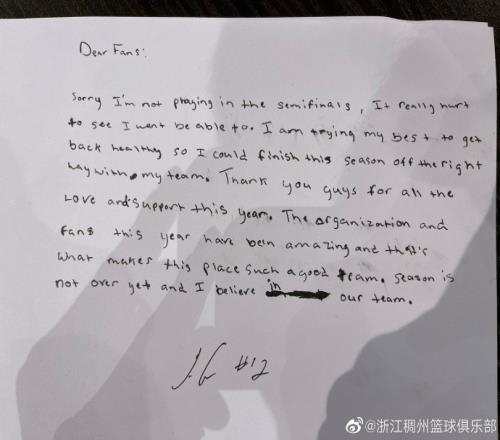 Dear Fans:
Sorry I'm not playing in the semifinals, It really hurt
to see I wont be able to. I am trying my best to get
back healthy so I could finish this season off the right
way with my team. Thank you guys for all the
Love and support this year. The organization and
fans this year have been amazing and that's
what makes this place such a good team. Season is
not over yet and I believe in our team.
#12
@浙江稠州篮球俱乐部